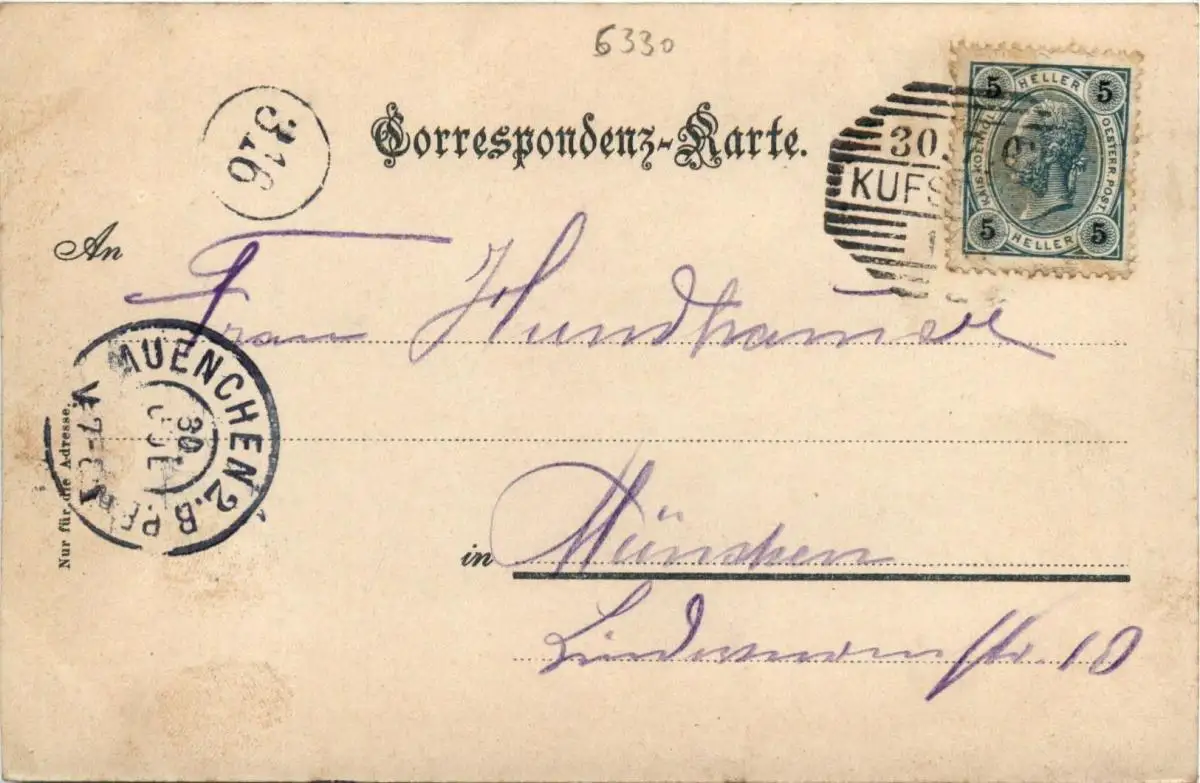 6330
Correspondenz-Karte.
316
5 HELLER 5
KAIS. KOENIGL. OESTERR. POST
5 HELLER 5
30
KUFS
An
Frau
MUENCHEN 2. B.P.
30
V 7-8
Nur für die Adresse.
in München
10